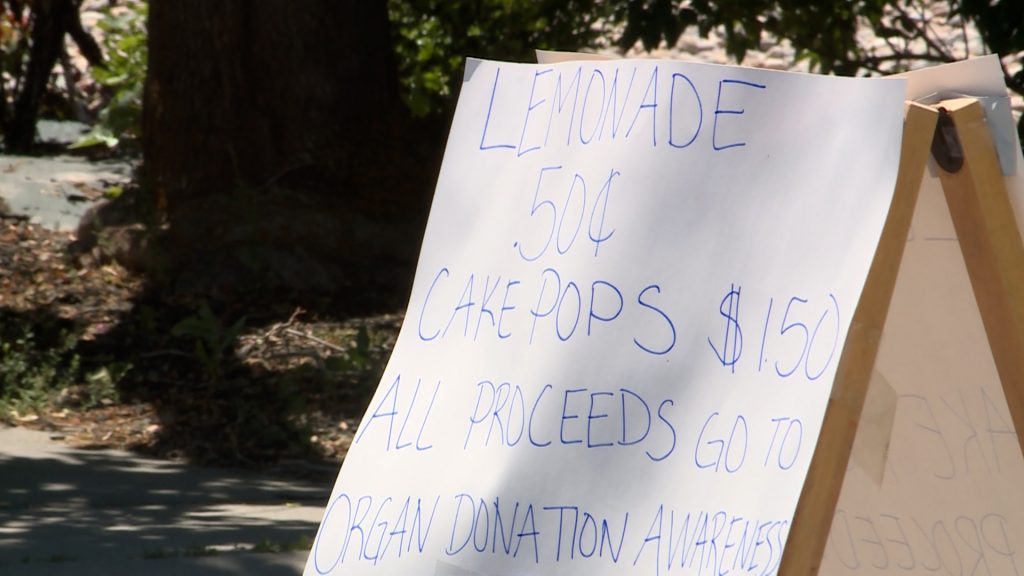 LEMONADE
.50¢
CAKE POPS $1.50
ALL PROCEEDS GO TO
ORGAN DONATION AWARENESS